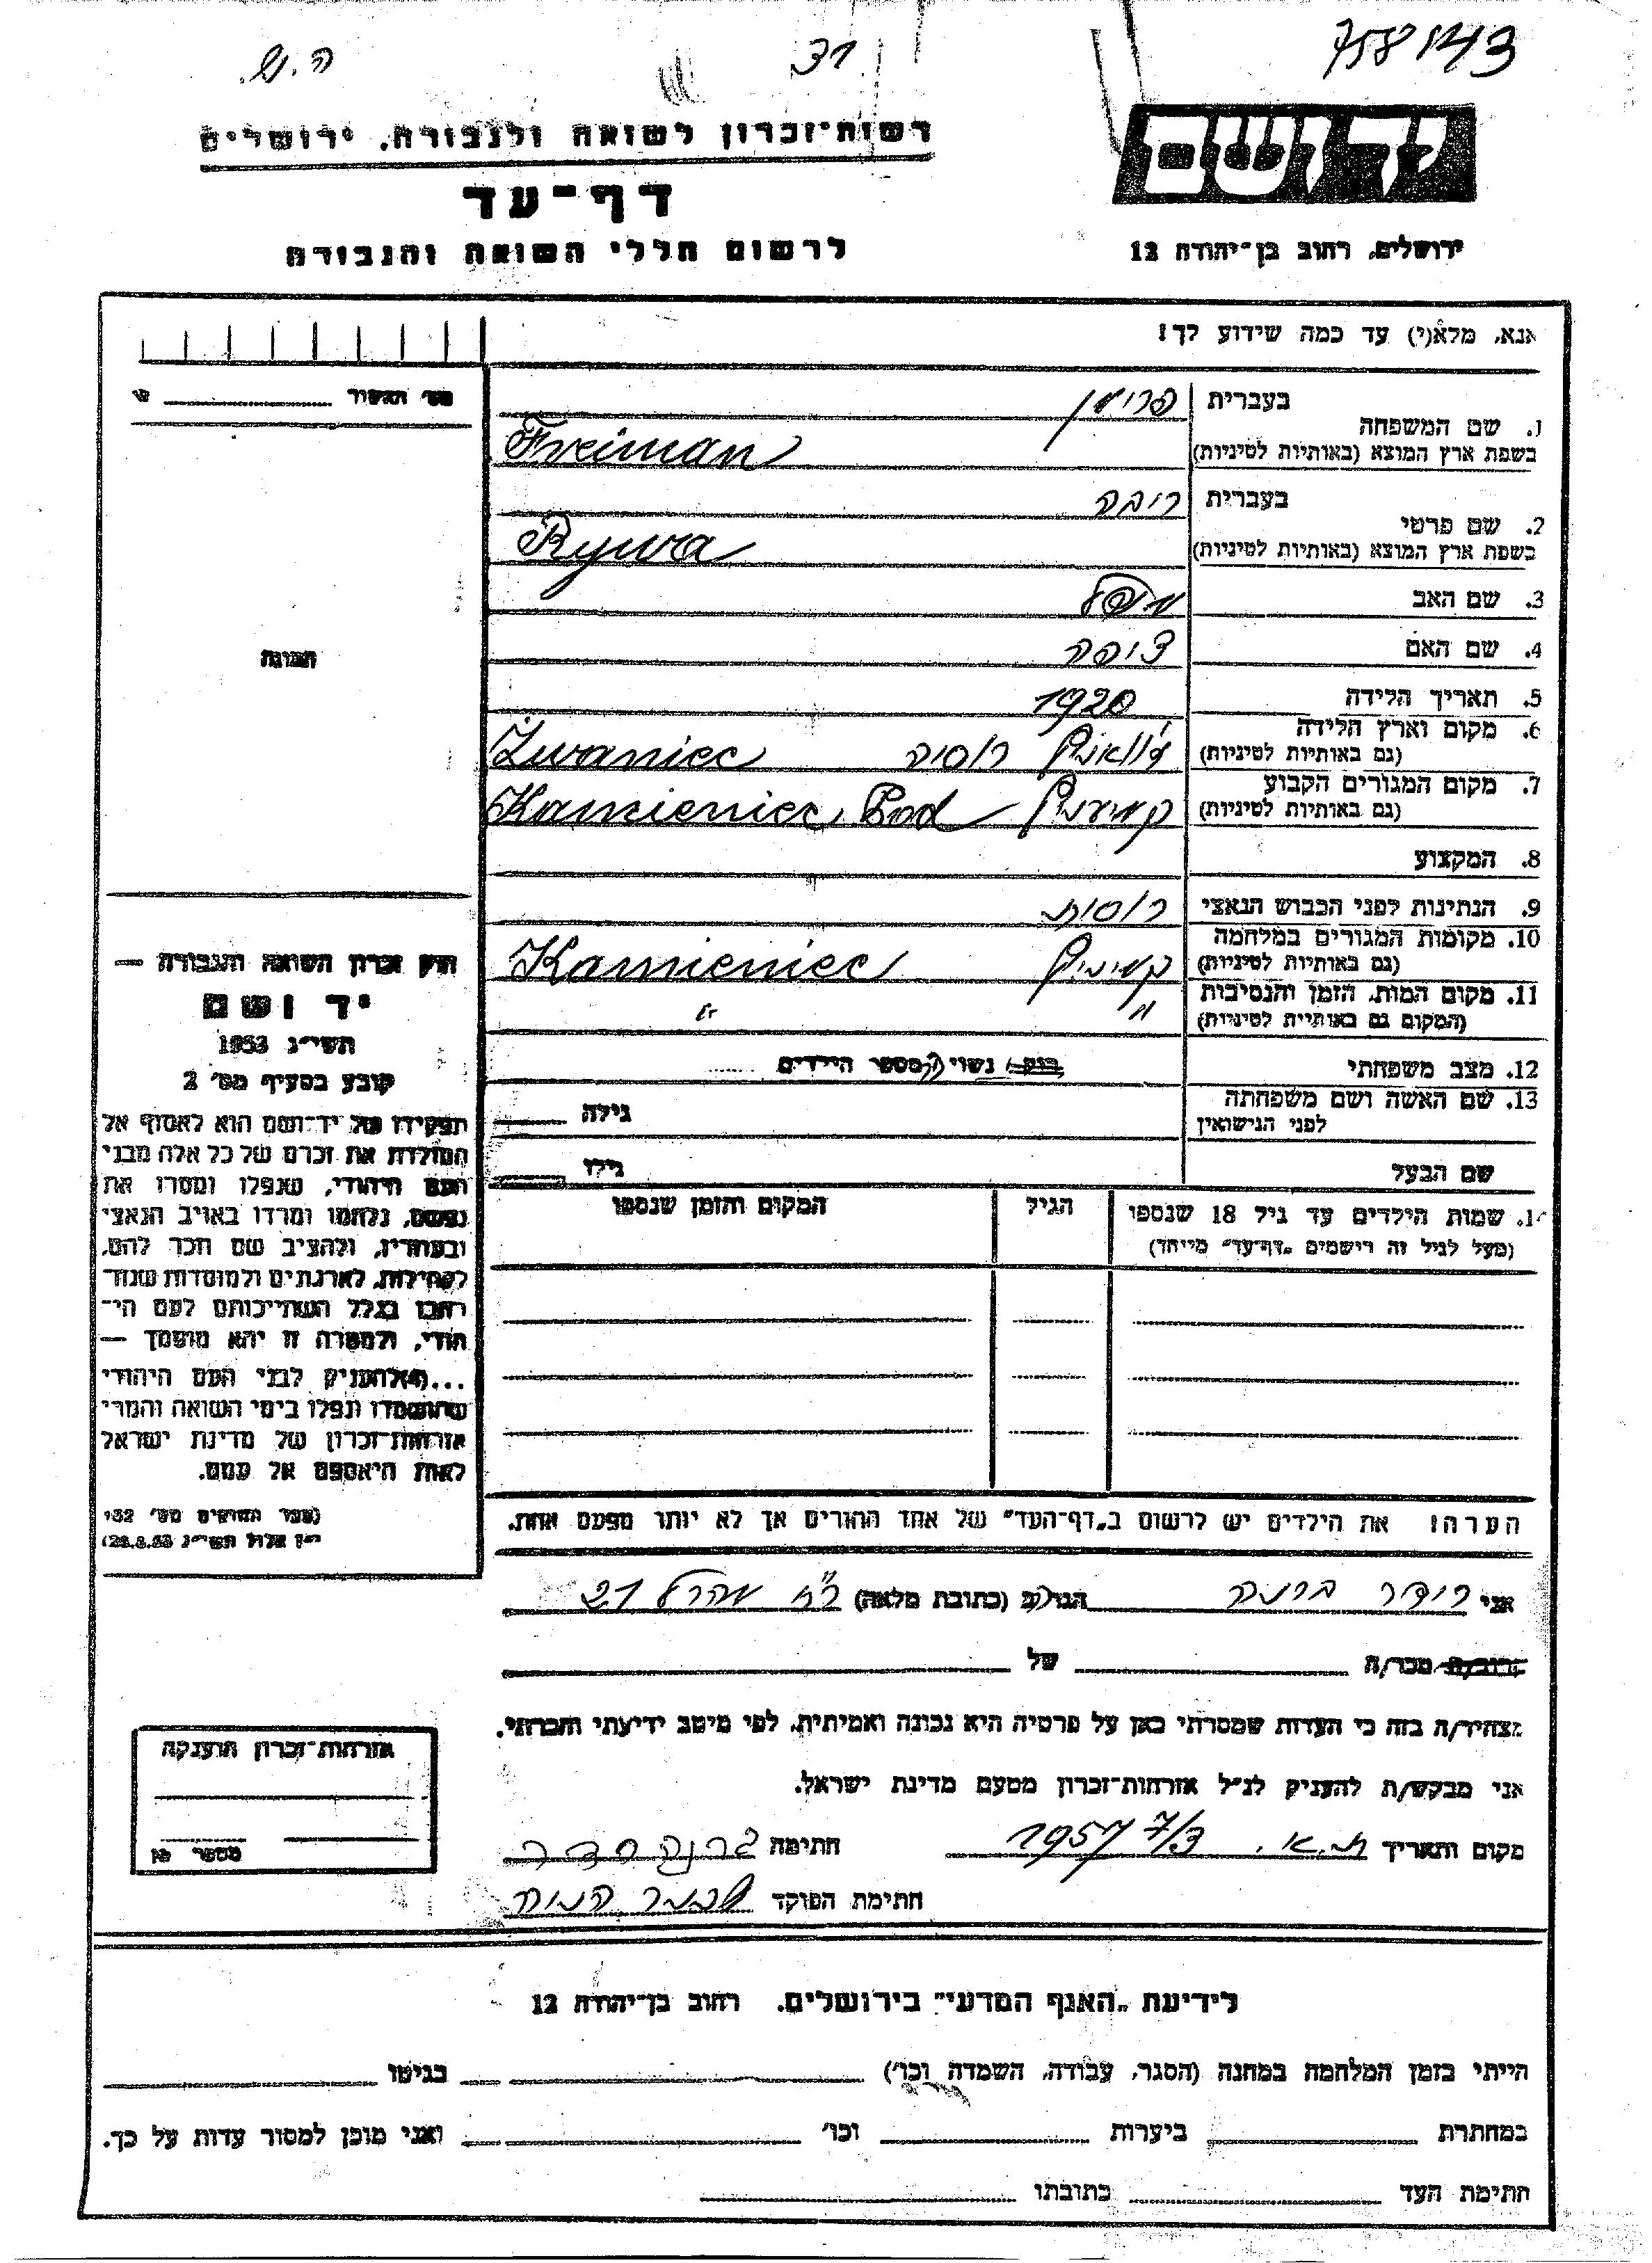 758143
31
ה.ש.
יד ושם
ירושלים, רחוב בן־יהודה 12
רשות־זכרון לשואה ולגבורה, ירושלים
דף־עד
לרשום חללי השואה והגבורה
אנא, מלא(י) עד כמה שידוע לך!
1. שם המשפחה בעברית פרימן
בשפת ארץ המוצא (באותיות לטיניות) Freiman
2. שם פרטי בעברית ריבה
בשפת ארץ המוצא (באותיות לטיניות) Rywa
3. שם האב
4. שם האם ציפה
5. תאריך הלידה 1920
6. מקום וארץ הלידה רוסיה Żwaniec
(גם באותיות לטיניות)
7. מקום המגורים הקבוע קמיעניץ Kamieniec Pod
(גם באותיות לטיניות)
8. המקצוע
9. הנתינות לפני הכבוש הנאצי רוסית
10. מקומות המגורים במלחמה קמיניץ Kamieniec
(גם באותיות לטיניות)
11. מקום המות, הזמן והנסיבות " "
(המקום גם באותיות לטיניות)
12. מצב משפחתי רווק/ נשוי/ה מספר הילדים
13. שם האשה ושם משפחתה גילה
לפני הנישואין
שם הבעל גילו
14. שמות הילדים עד גיל 18 שנספו הגיל המקום והזמן שנספו
(מעל לגיל זה רישמים "דף־עד" מייחד)
הערה! את הילדים יש לרשום ב"דף־העד" של אחד ההורים אך לא יותר מפעם אחת.
מס' התיקור
תמונה
חוק זכרון השואה והגבורה —
יד ושם
תשי"ג 1953
קובע בסעיף מס' 2
תפקידו של יד־ושם הוא לאסוף אל
המולדת את זכרם של כל אלה מבני
העם היהודי, שנפלו ומסרו את
נפשם, נלחמו ומרדו באויב הנאצי
ובעוזריו, ולהציב שם וזכר להם,
לקהילות, לארגונים ולמוסדות שנח־
רבו בגלל השתייכותם לעם הי־
הודי, ולמטרה זו יהא מוסמך —
...(4) להעניק לבני העם היהודי
שהושמדו ונפלו בימי השואה והמרי
אזרחות־זכרון של מדינת ישראל
לאות היאספם אל עמם.
(ספר החוקים מס' 132
י"ז אלול תשי"ג 28.8.53)
אני ברנה הגר/ה ב (כתובת מלאה) רח' 21
קרוב/ה מכר/ה של
מצהיר/ה בזה כי העדות שמסרתי כאן על פרטיה היא נכונה ואמיתית, לפי מיטב ידיעתי והכרתי.
אני מבקש/ת להעניק לנ"ל אזרחות־זכרון מטעם מדינת ישראל.
מקום ותאריך ת.א. 7/3 1957 חתימה
חתימת הפוקד
אזרחות־זכרון הוענקה
מספר
לידיעת "האגף המדעי" בירושלים, רחוב בן־יהודה 12
הייתי בזמן המלחמה במחנה (הסגר, עבודה, השמדה וכו') בגיטו
במחתרת ביערות וכו' ואני מוכן למסור עדות על כך.
חתימת העד כתובתו